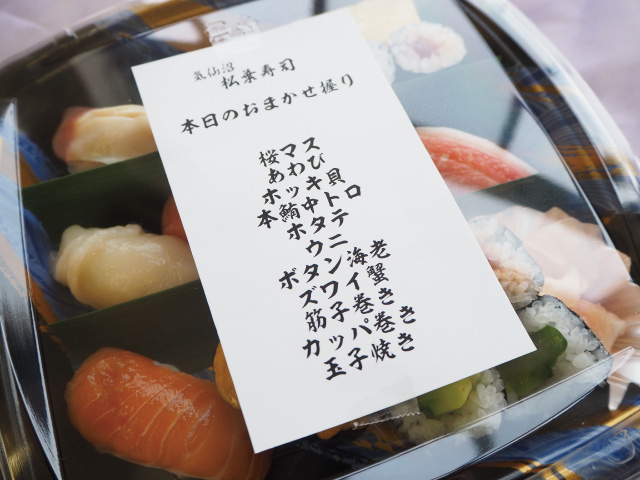 気仙沼
松葉寿司
本日のおまかせ握り
桜マス
あわび
ホッキ貝
本鮪中トロ
ホタテ
ウニ
ボタン海老
ズワイ蟹
筋子巻き
カッパ巻き
玉子焼き